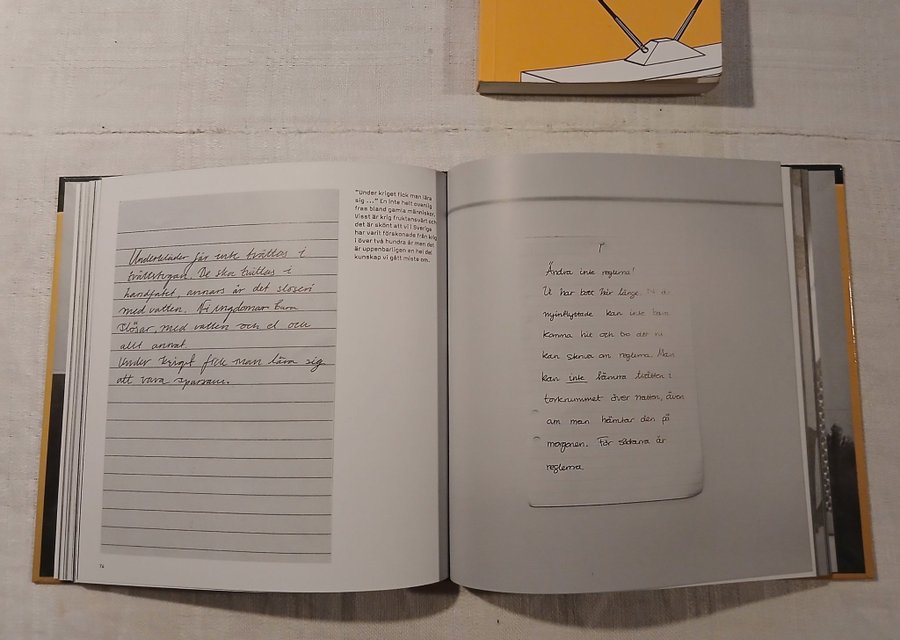 Underkläder får inte tvättas i
tvättstugan. De ska tvättas i
handfatet, annars är det slöseri
med vatten. Ni ungdomar bara
slösar med vatten och el och
allt annat.
Under kriget fick man lära sig
att vara sparsam.
"Under kriget fick man lära
sig ..." En inte helt ovanlig
fras bland gamla människor.
Visst är krig fruktansvärt och
det är skönt att vi i Sverige
har varit förskonade från krig
i över två hundra år men det
är uppenbarligen en hel del
kunskap vi gått miste om.
76
Ändra inte reglerna!
Vi har bott här länge. Ni
nyinflyttade kan inte bara
komma hit och tro att ni
kan skriva om reglerna. Man
kan inte lämna tvätten i
torkrummet över natten, även
om man hämtar den på
morgonen. För sådana är
reglerna